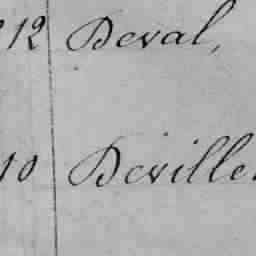 12 Deval,
10 Deville